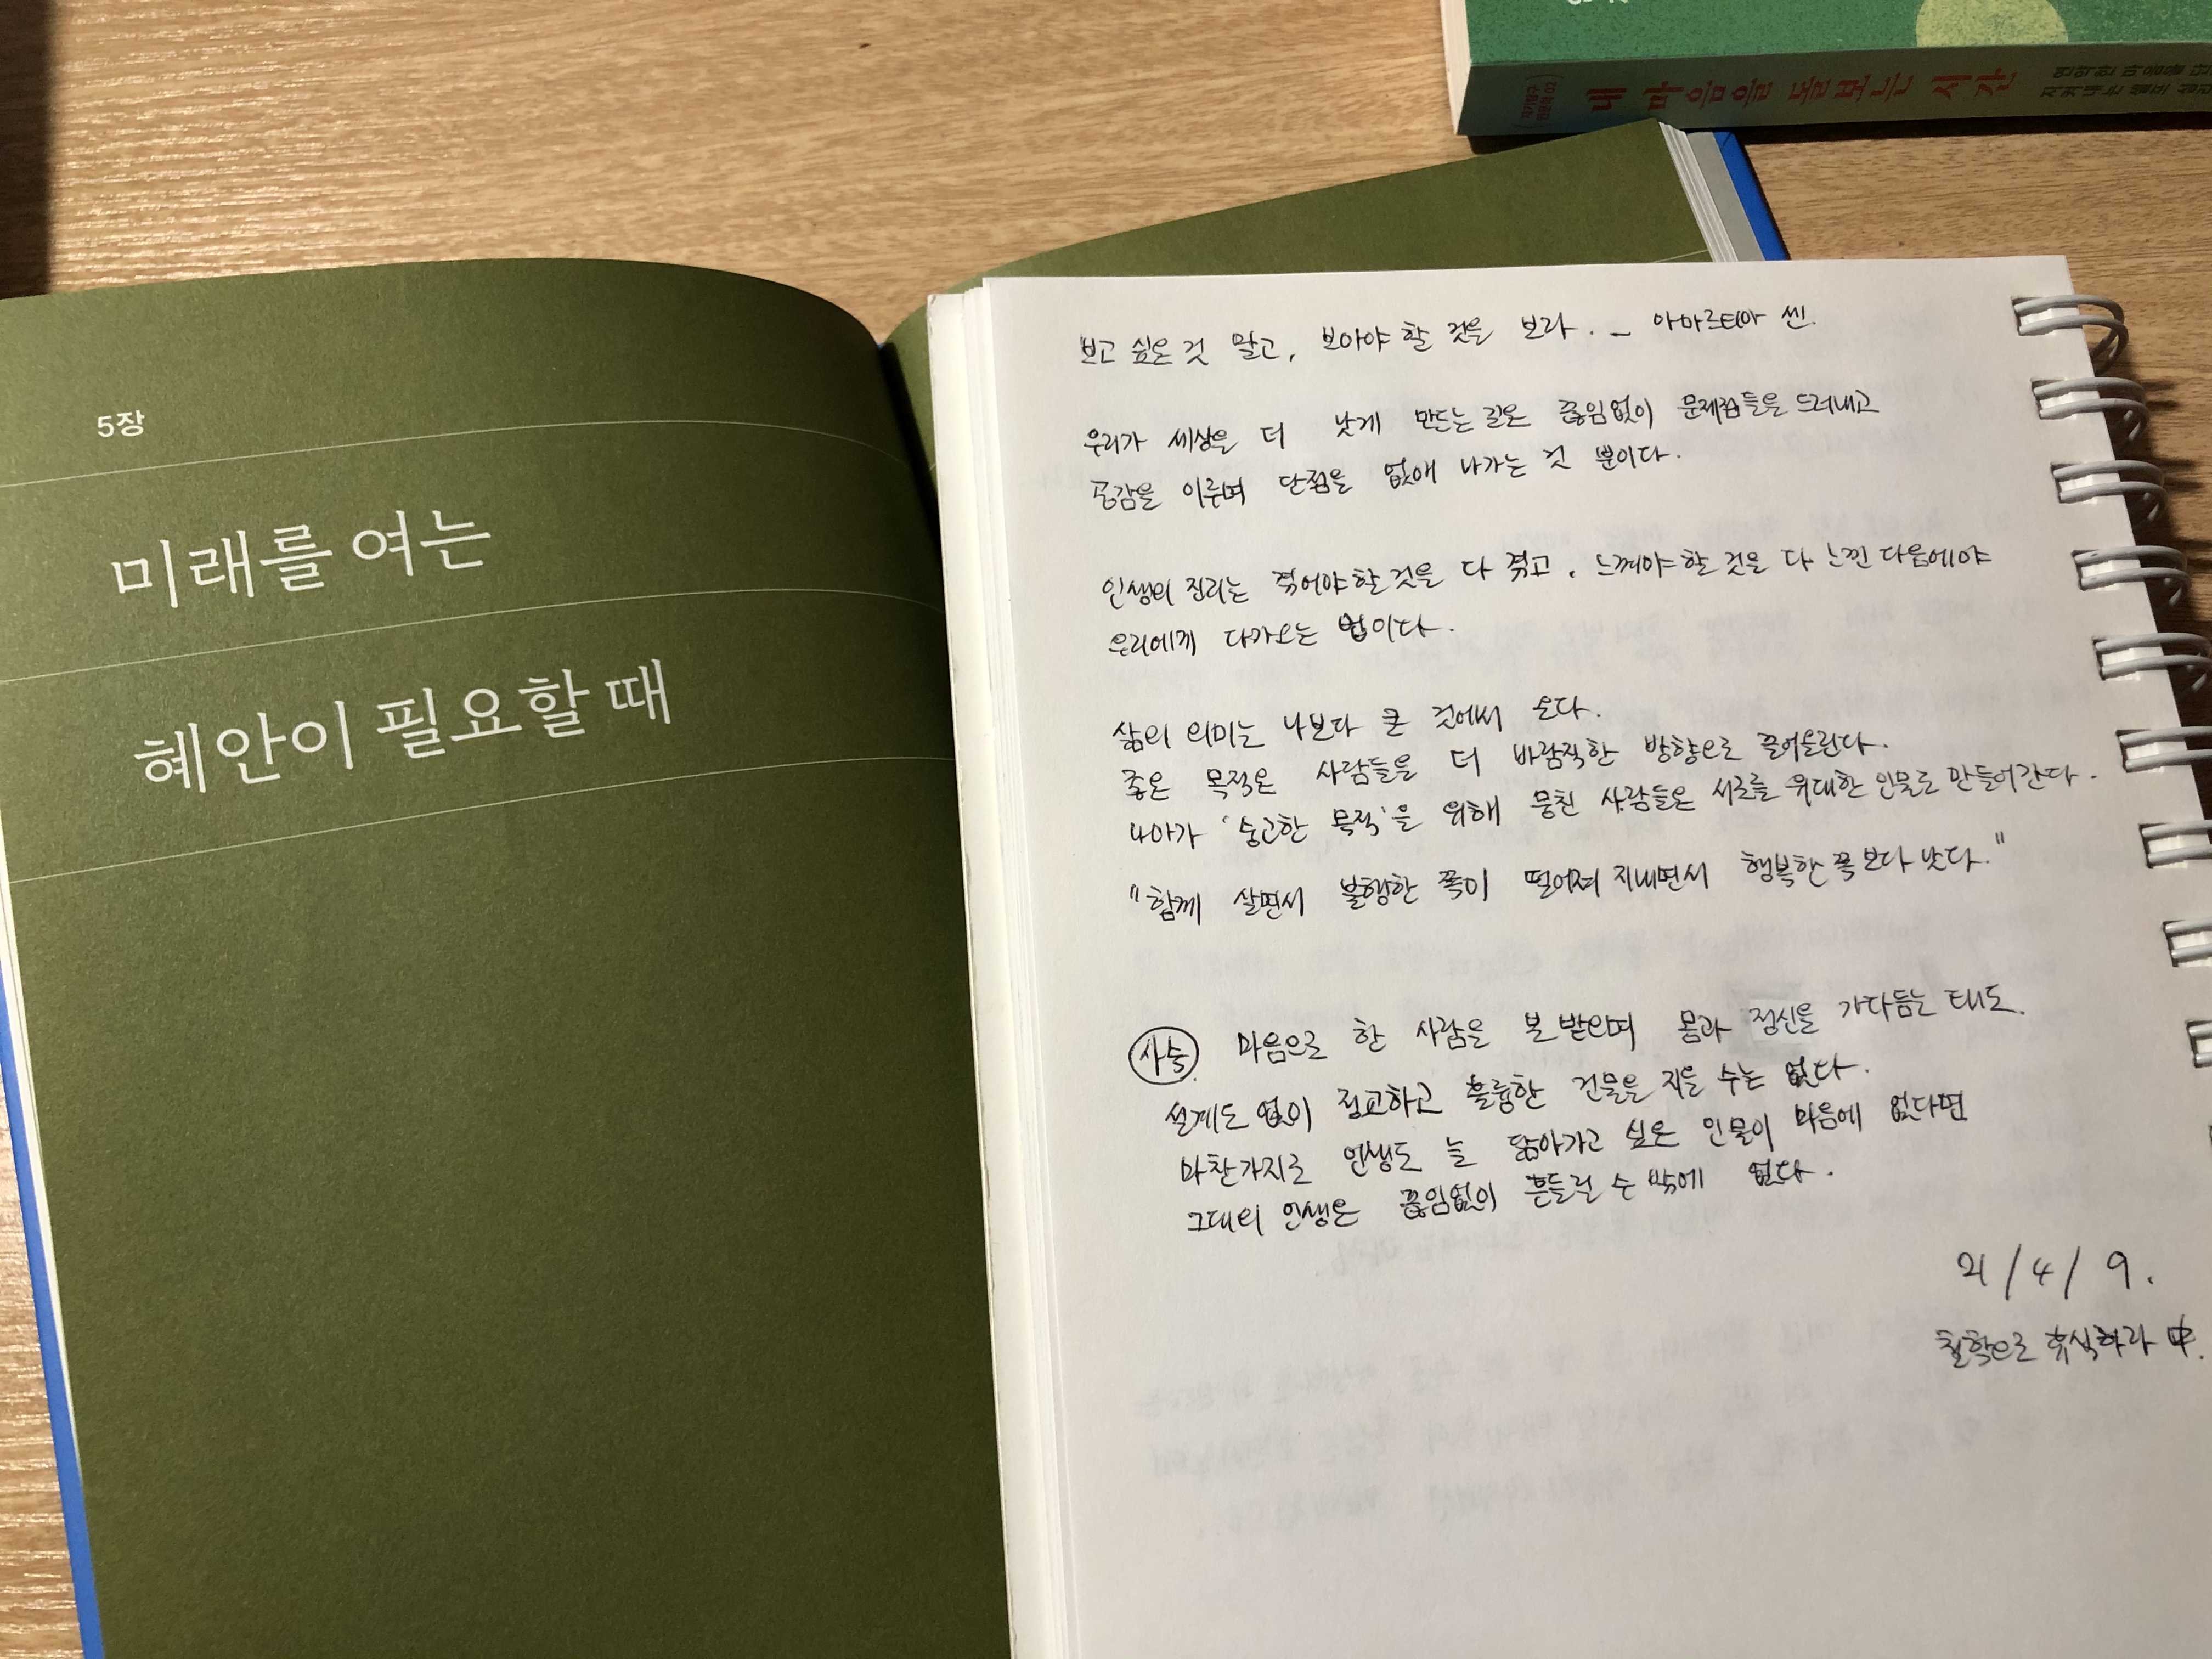 내 마음을 돌보는 시간
5장
미래를 여는
혜안이 필요할 때
보고 싶은 것 말고, 보아야 할 것을 보라. - 아마르티아 센.
우리가 세상을 더 낫게 만드는 길은 끊임없이 문제점들을 드러내고
공감을 이루며 단점을 없애 나가는 것 뿐이다.
인생의 진리는 겪어야 할 것을 다 겪고, 느껴야 할 것을 다 느낀 다음에야
우리에게 다가오는 법이다.
삶의 의미는 나보다 큰 것에서 온다.
좋은 목적은 사람들을 더 바람직한 방향으로 끌어올린다.
나아가 '숭고한 목적'을 위해 뭉친 사람들은 서로를 위대한 인물로 만들어간다.
"함께 살면서 불행한 쪽이 떨어져 지내면서 행복한 쪽보다 낫다."
사숙. 마음으로 한 사람을 본 받으며 몸과 정신을 가다듬는 태도.
설계도 없이 정교하고 훌륭한 건물을 지을 수는 없다.
마찬가지로 인생도 늘 닮아가고 싶은 인물이 마음에 없다면
그대의 인생은 끊임없이 흔들릴 수 밖에 없다.
21/4/9.
철학으로 휴식하라 中.